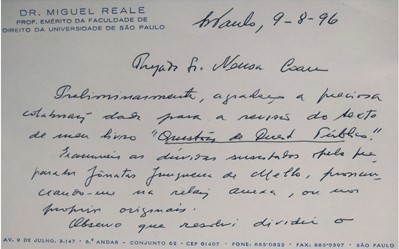 DR. MIGUEL REALE
PROF. EMÉRITO DA FACULDADE DE
DIREITO DA UNIVERSIDADE DE SÃO PAULO
S. Paulo, 9-8-96
Prezado Sr. Neusa
Preliminarmente, agradeço a preciosa
colaboração dada para a revisão do texto
de meu livro "Questões de Direito Público".
Examinei as dúvidas suscitadas pelo
Jônatas Junqueira de Mello, pronun-
ciando-me na relação anexa, ou nos
próprios originais.
Observo que resolvi dividir o
AV. 9 DE JULHO, 3.147 - 6.º ANDAR - CONJUNTO 62 - CEP 01407 - FONE: 885-0822 - FAX: 885-9397 - SÃO PAULO